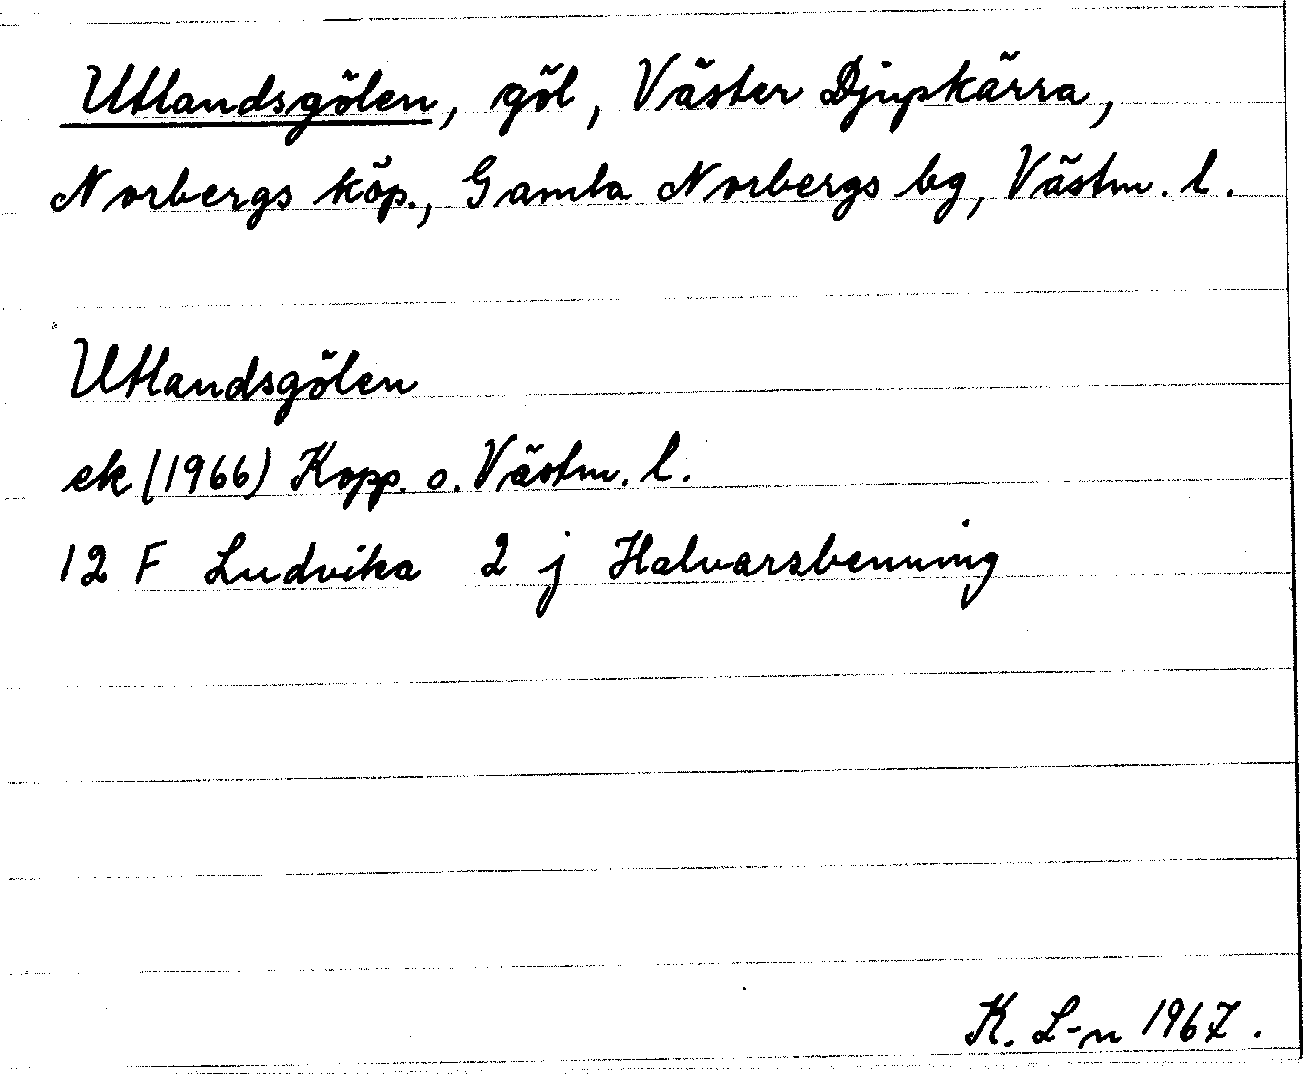 Utlandsgölen, göl, Väster Djupkärra,
Norbergs köp., Gamla Norbergs bg, Västm. l.
Utlandsgölen
ek (1966) Kopp. o. Västm. l.
12 F Ludvika 2 j Halvarsbenning
K. L-n 1967.